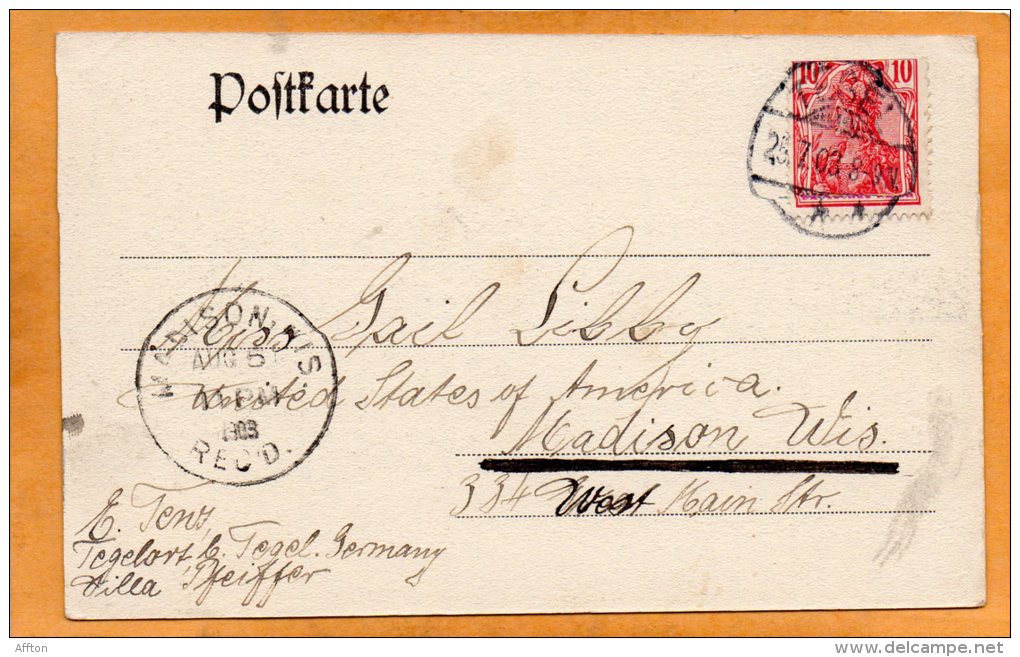 Postkarte
10 10
25.7.03. 8-9V.
Miss Gail Libby
United States of America.
Madison Wis.
334 West Main Str.
MADISON, WIS.
AUG 5
PM
1903
REC'D.
E. Tenz,
Tegelort, b. Tegel. Germany
Villa Pfeiffer
Affton
www.delcampe.net